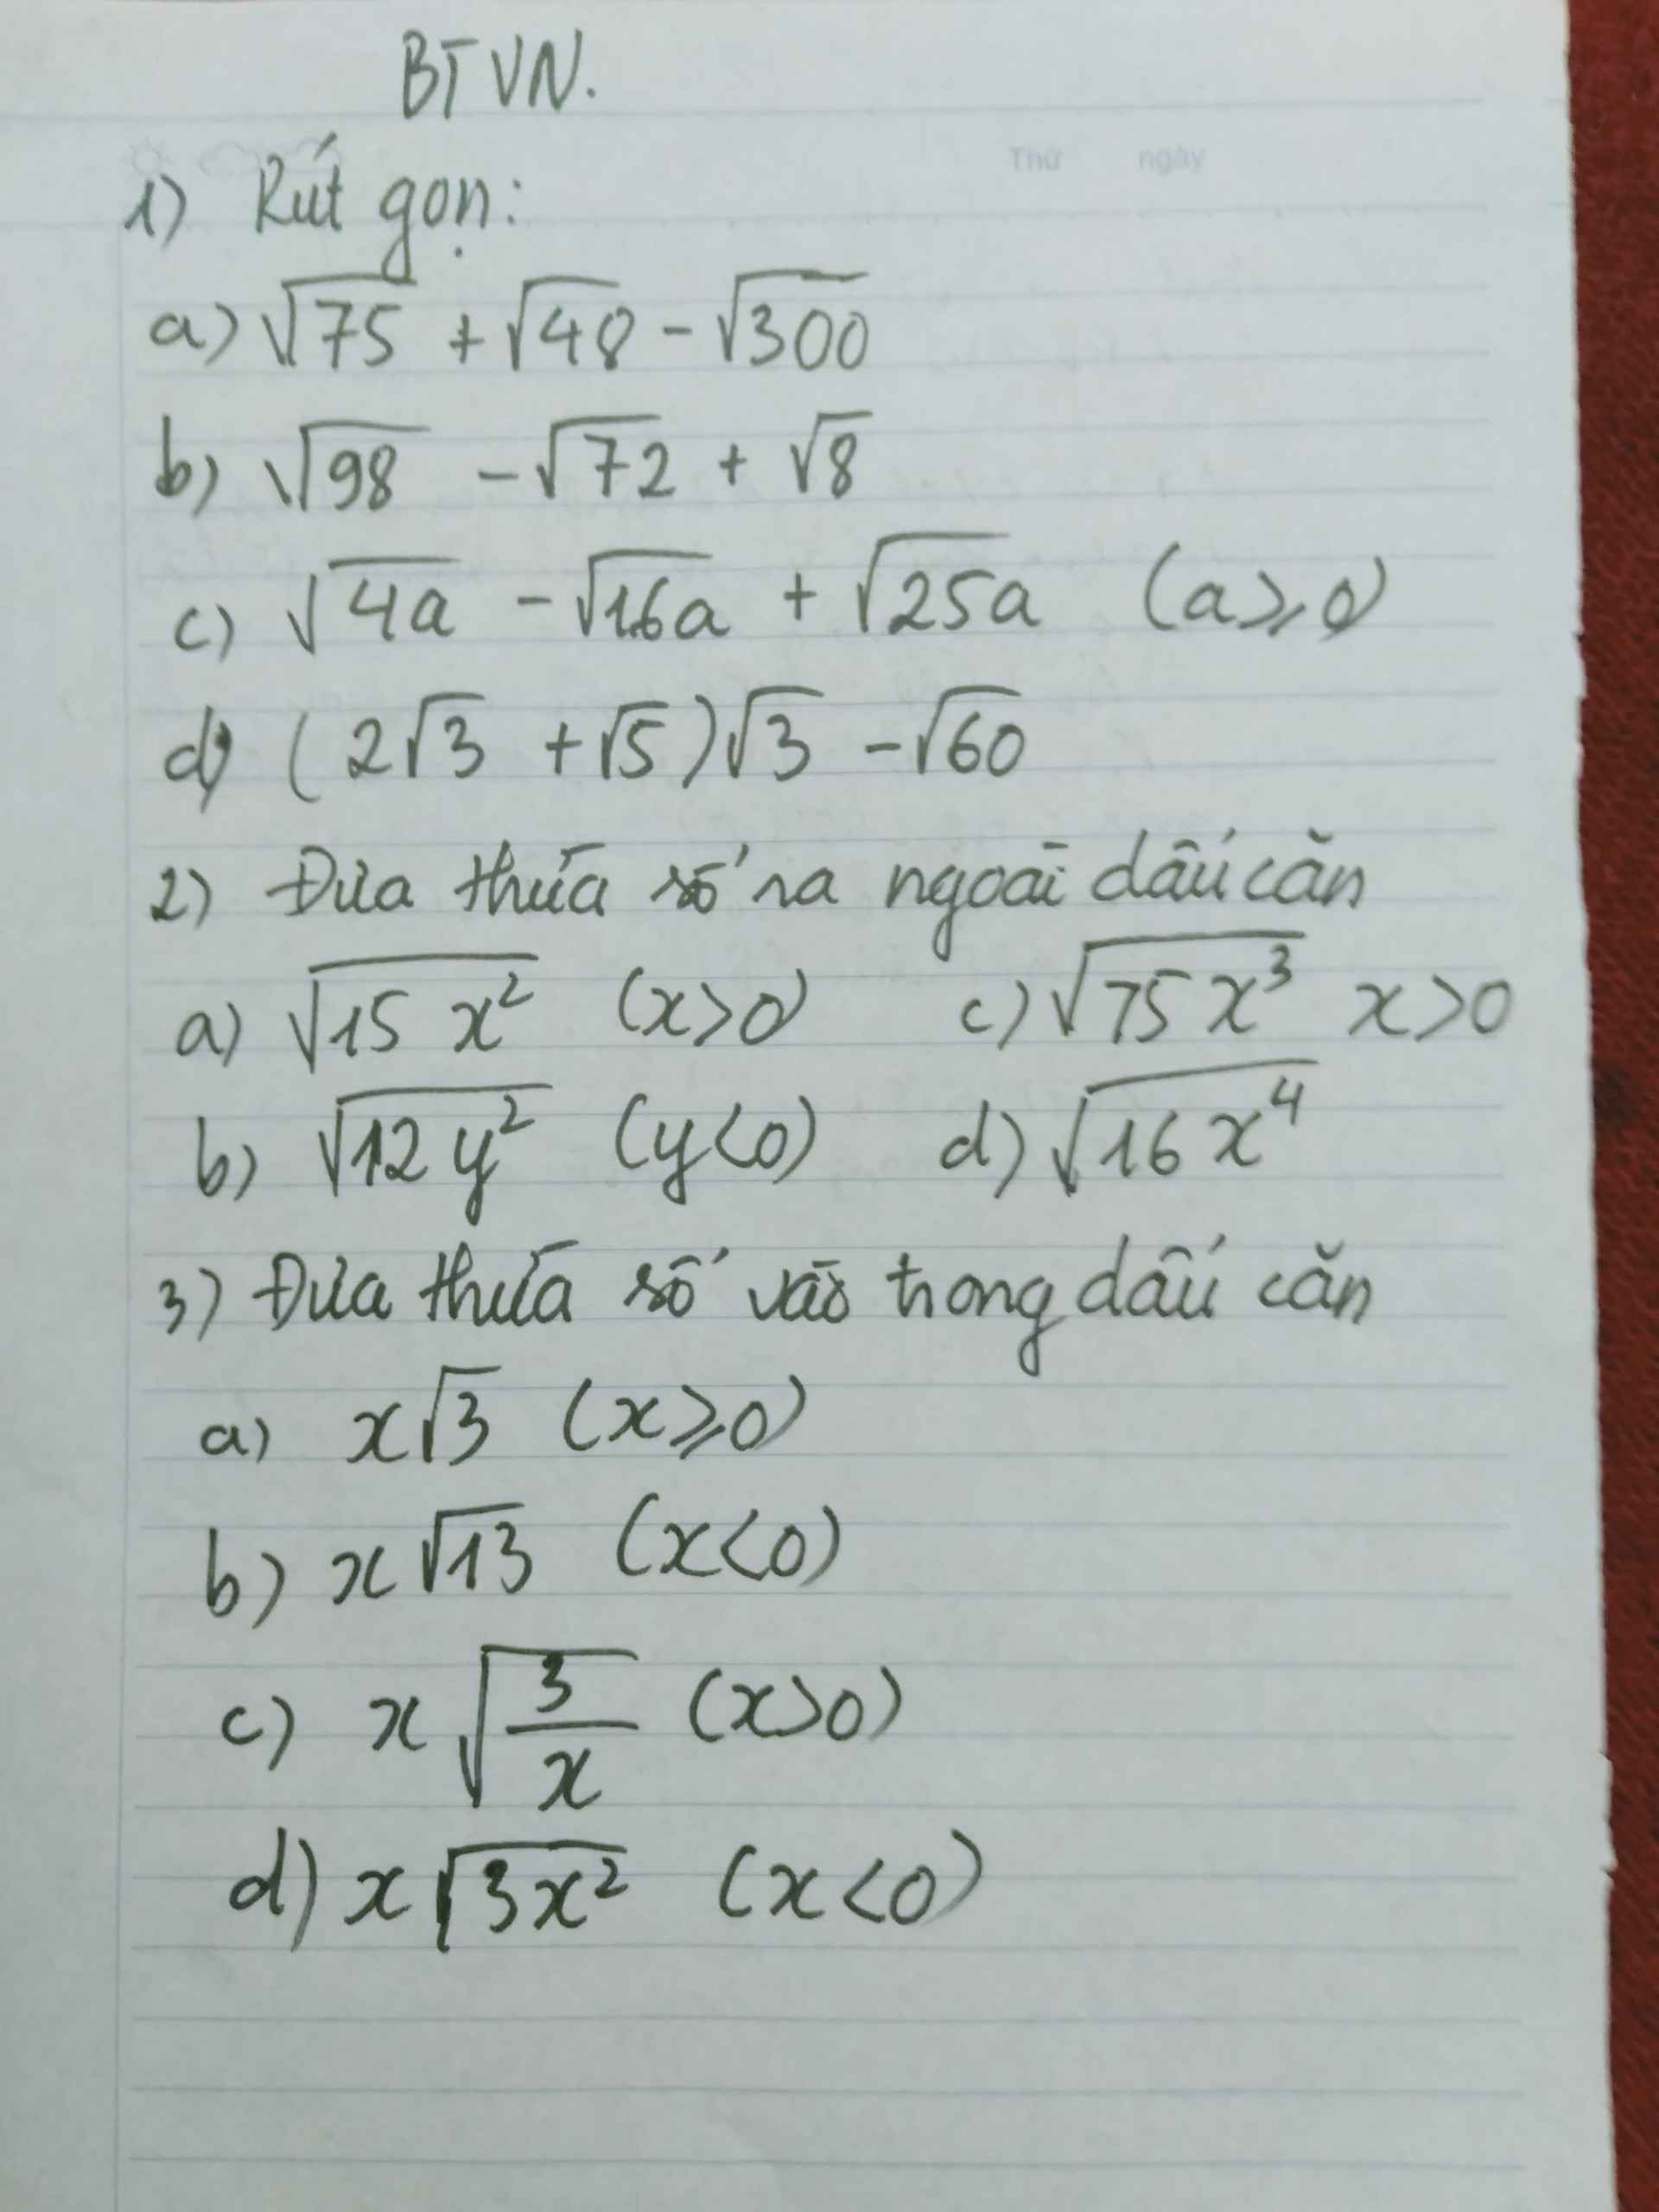 BTVN.
Thứ ngày
1) Rút gọn:
a) √75 + √48 - √300
b) √98 - √72 + √8
c) √4a - √16a + √25a (a⩾0)
d) (2√3 + √5)√3 - √60
2) Đưa thừa số ra ngoài dấu căn
a) √15x² (x>0) c) √75x³ x>0
b) √12y² (y<0) d) √16x⁴
3) Đưa thừa số vào trong dấu căn
a) x√3 (x⩾0)
b) x√13 (x<0)
c) x√(3/x) (x>0)
d) x√3x² (x<0)